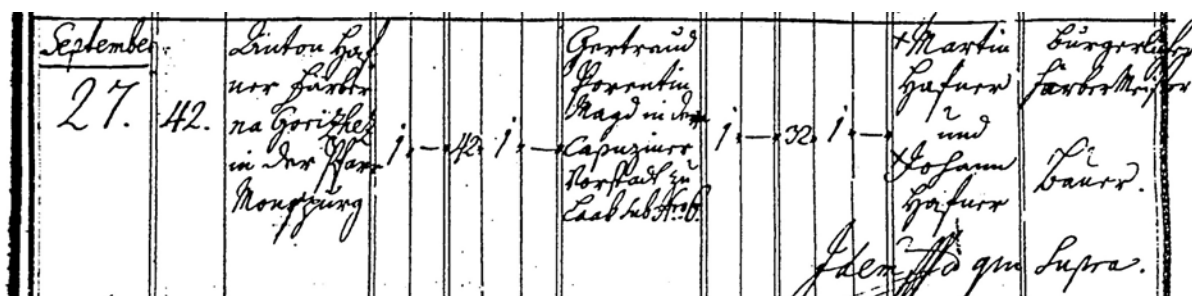 September
27.
42.
Anton Haf
ner Färber
na Gorizhez
in der Pfarr
Monspurg
1 — 42. 1 —
Gertraud
Porentin
Magd in der
Capuziner
Vorstadt zu
Laab sub Nro 6.
1 — 32. 1 —
+ Martin
Hafner
und
+ Johann
Hafner
bürgerlicher
Färber Meister
Bauer.
Idem qui Supra.